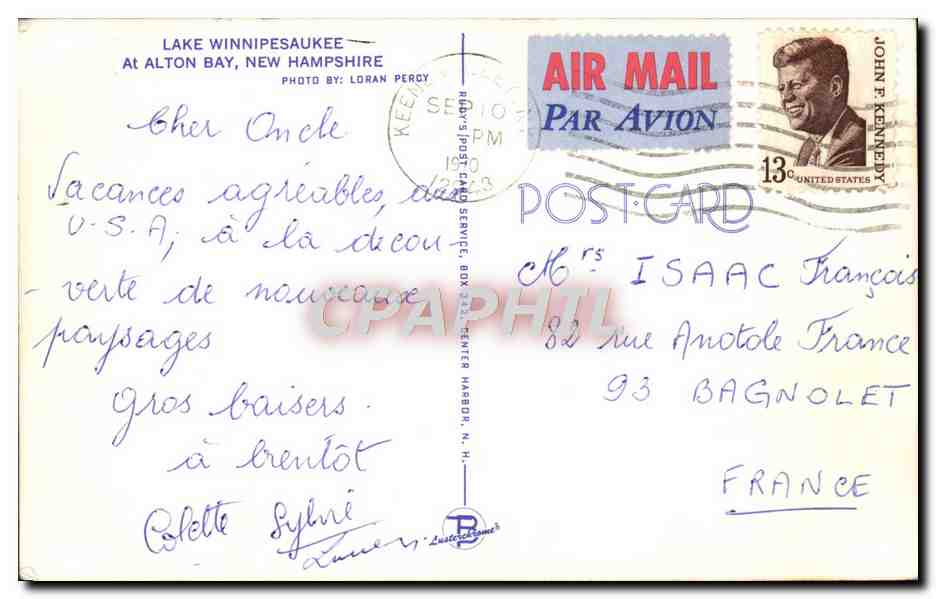 LAKE WINNIPESAUKEE
At ALTON BAY, NEW HAMPSHIRE
PHOTO BY: LORAN PERCY
Cher Oncle
Vacances agréables, aux
U.S.A; à la décou-
-verte de nouveaux
paysages
Gros baisers.
à bientôt
Colette Sylvie
RUDY'S POST CARD SERVICE, BOX 242, CENTER HARBOR, N. H.
Lusterchrome
KEENE
SEP 10
PM
1970
AIR MAIL
PAR AVION
JOHN F. KENNEDY
13c UNITED STATES
POST CARD
Mrs ISAAC François
82 rue Anatole France
93 BAGNOLET
FRANCE
CPAPHIL